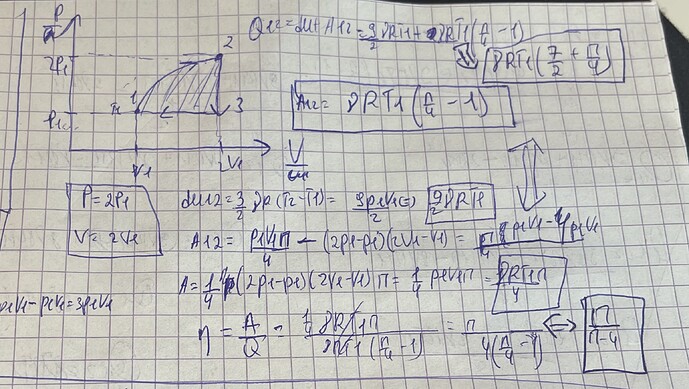 P
2P1
P1
1
2
3
V1
2V1
V
Q12 = A12 = 9/2 νRT1 + νRT1(π/4 - 1)
νRT1(7/2 + π/4)
A12 = νRT1(π/4 - 1)
P = 2P1
V = 2V1
3/2 νR(T2 - T1) = 9P1V1/2 => 9/2 νRT1
A12 = P1V1π/4 - (2P1 - P1)(2V1 - V1) = π/4 P1V1 - 4P1V1
A = 1/4 (2P1 - P1)(2V1 - V1)π = 1/4 P1V1π = νRT1π/4
P1V1 = 3P1V1
η = A/Q = 1/4 νRT1π / νRT1(π/4 - 1) = π / 4(π/4 - 1) <=> π/π-4